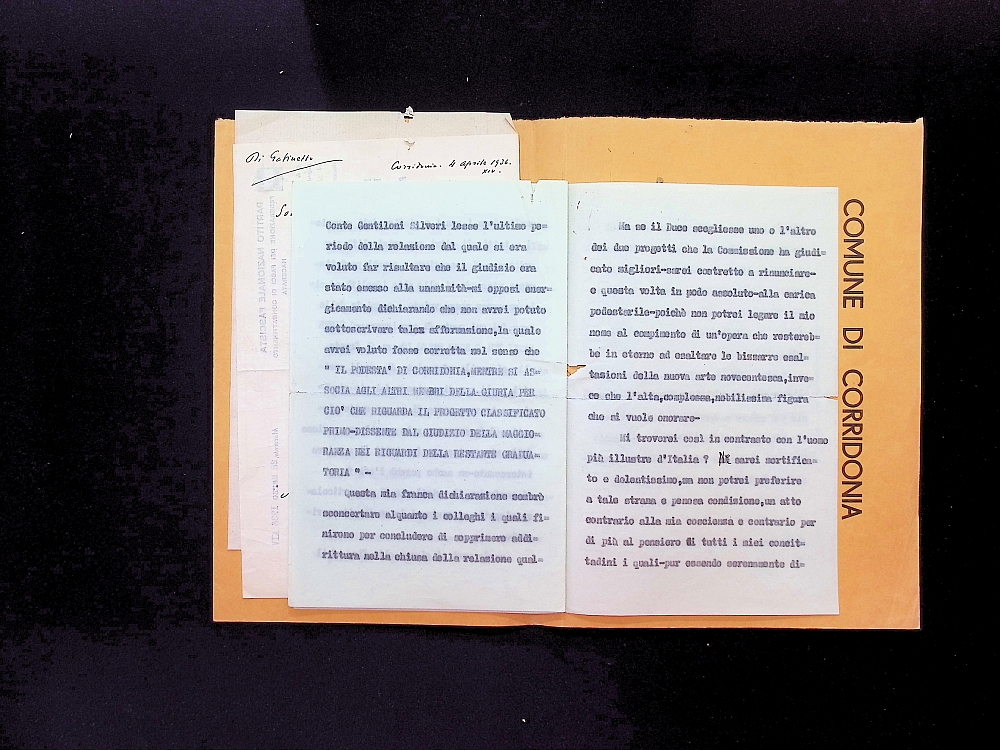 Di Gabinetto
Corridonia. 4 Aprile 1936.
XIV.
Conte Gentiloni Silveri lesse l'ultimo pe=
riodo della relazione dal quale si era
voluto far risultare che il giudizio era
stato emesso alla unanimità-mi opposi ener=
gicamente dichiarando che non avrei potuto
sottoscrivere talex affermazione,la quale
avrei voluto fosse corretta nel senso che
" IL PODESTA' DI CORRIDONIA,MENTRE SI AS=
SOCIA AGLI ALTRI MEMBRI DELLA GIURIA PER
CIO' CHE RIGUARDA IL PROGETTO CLASSIFICATO
PRIMO-DISSENTE DAL GIUDIZIO DELLA MAGGIO=
RANZA NEI RIGUARDI DELLA RESTANTE GRADUA=
TORIA " -
Questa mia franca dichiarazione sembrò
sconcertare alquanto i colleghi i quali fi=
nirono per concludere di sopprimere addi=
rittura nella chiusa della relazione qual=
Ma se il Duce scegliesse uno o l'altro
dei due progetti che la Commissione ha giudi=
cato migliori-sarei costretto a rinunciare-
e questa volta in modo assoluto-alla carica
podestarile-poichè non potrei legare il mio
nome al compimento di un'opera che resterebe=
be in eterno ad esaltare le bizzarre esal=
tazioni della nuova arte novecentesca,inve=
ce che l'alta,complessa,nobilissima figura
che si vuole onorare-
Mi troverei così in contrasto con l'uomo
più illustre d'Italia ? Ne sarei mortifica=
to e dolentissimo,ma non potrei preferire
a tale strana e penosa condizione,un atto
contrario alla mia coscienza e contrario per
di più al pensiero di tutti i miei concit=
tadini i quali-pur essendo serenamente di=
COMUNE DI CORRIDONIA
PARTITO NAZIONALE FASCISTA
FEDERAZIONE DEI FASCI DI COMBATTIMENTO
MACERATA